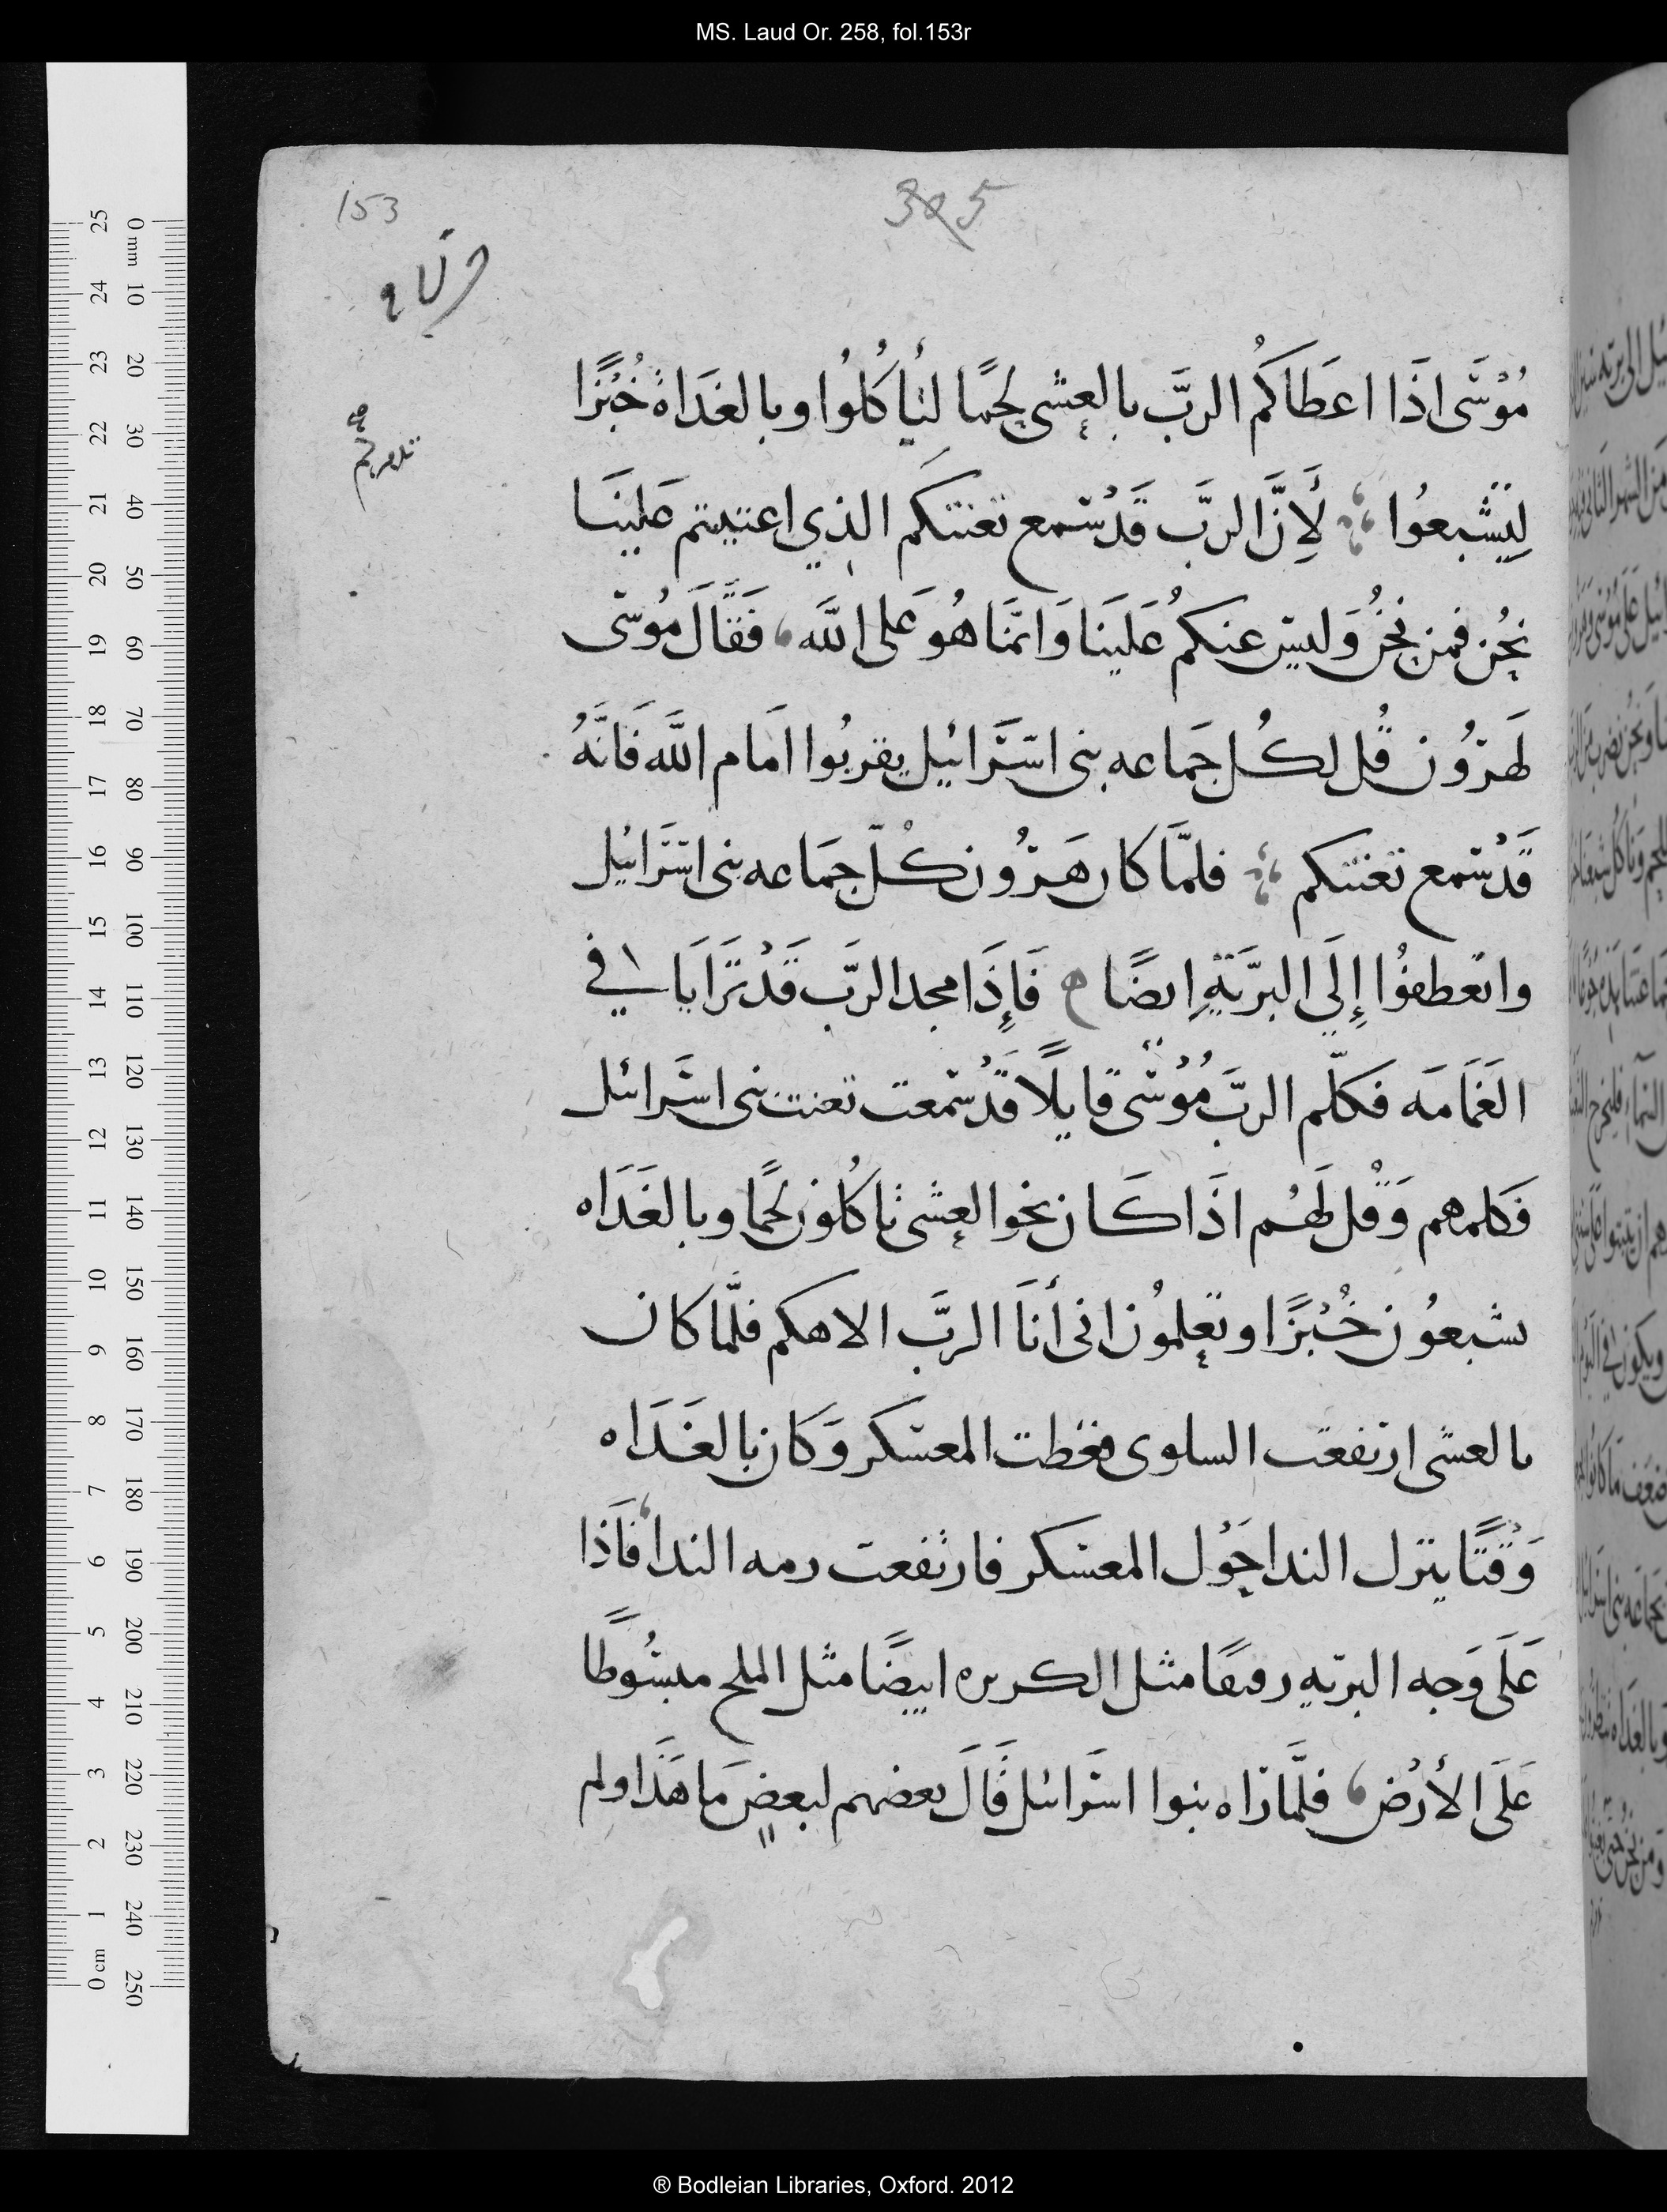 MS. Laud Or. 258, fol.153r
153
305
مُوْسَى اذَا اعَطَاكُم الربَّ بالعشى لحمًا لتأكُلُوا وبالغَدَاة خُبْزًا
لِتَشبعُوا لأِنَّ الربَّ قَدْ سمع تعنتكم الذي اعتنيتم عَلينَا
نحُن فمن نحْنُ وَليس عنكمُ عَلَينَا وَانمَّا هُوَ عَلى الله فَقَالَ مُوسَى
لهَرُون قُل لكُل جَماعه بنى اسَرائيل يقربُوا امَام الله فَانَّهُ
قَدْ سمع تعنتكم فلمَّا كان هَرُون كلّ جمَاعه بنى اسَرَائيل
وانعطفُوا إلَي البرَّيَةِ ايضًا فَإِذَا مجد الربّ قَدْ تَرَايَا في
الغَمَامَه فَكلّم الربَّ مُوْسَى قايلًا قَدْ سمعت تعنت بنى اسَرائل
فَكلمهم وَقُل لَهُم اذَا كَان نحو العشى تاكُلُون لحمًا وبالغَدَاه
تشبعُون خُبْزًا وتعلمُون انى أنَا الربَّ الاهكم فلّما كان
بالعشى ارتفعت السلوى فغطت المعسَكر وَكان بالغَدَاه
وَقْتًا ينزل الندا حَوْل المعسَكر فارتفعت رمه الندا فَاذا
عَلَى وَجه البريَه رقيقًا مثل الكزبره ابيضًا مثل الملح مبسُوطًا
عَلَى الأرْض فلّما رَاه بنوا اسَرائل قَالَ بعضهم لبعضٍ مَا هَذَا ولم
® Bodleian Libraries, Oxford. 2012